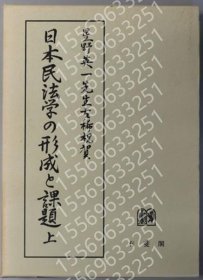 星野英一先生古稀祝賀
日本民法学の形成と課題 上
有斐閣
15569633251